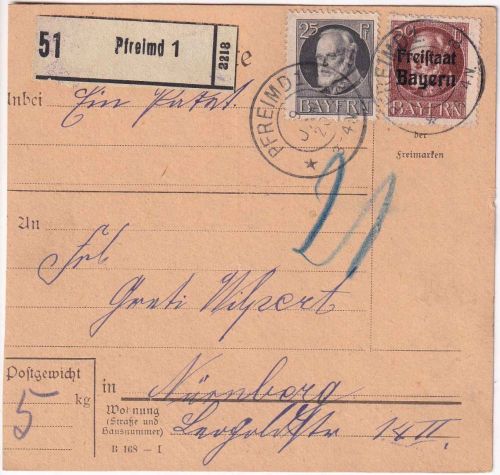 51 Pfreimd 1 8218
te
25 Pf
BAYERN
Freistaat
Bayern
BAYERN
PFREIMD
4-N
der
Freimarken
Anbei Ein Paket.
21
An
Frl.
Greti Wilpert
Postgewicht
5 kg
in Nürnberg
Wohnung
(Straße und
Hausnummer)
Leopoldstr 14 II
B 168 - I